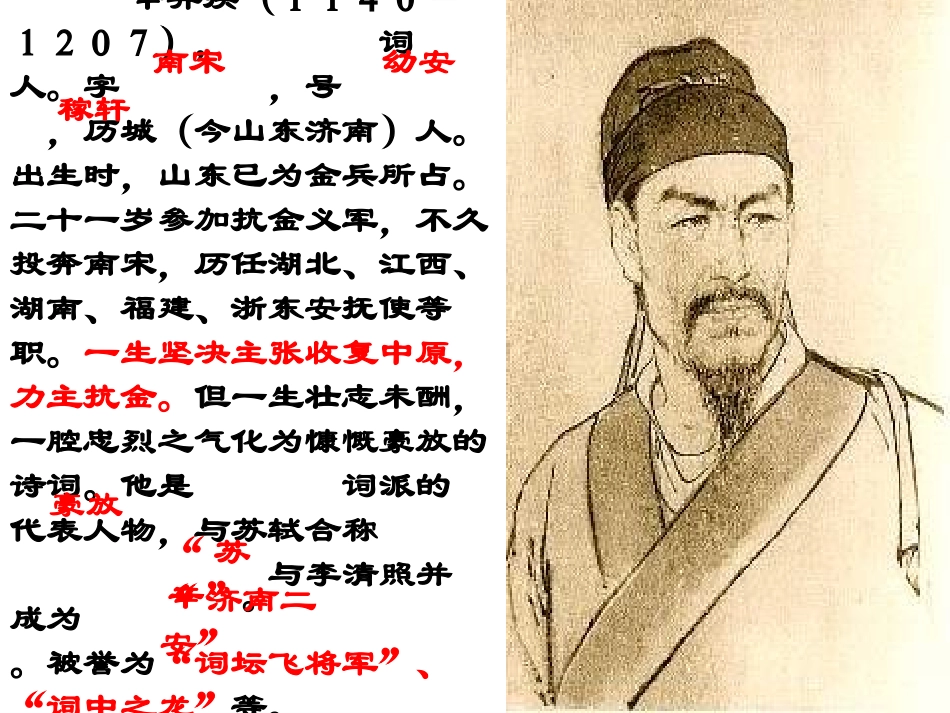 辛弃疾（１１４０－
１２０７），词
南宋 幼安
人。字 ，号
稼轩
，历城（今山东济南）人。
出生时，山东已为金兵所占。
二十一岁参加抗金义军，不久
投奔南宋，历任湖北、江西、
湖南、福建、浙东安抚使等
职。一生坚决主张收复中原，
力主抗金。但一生壮志未酬，
一腔忠烈之气化为慷慨豪放的
诗词。他是 词派的
豪放
代表人物，与苏轼合称
“苏
与李清照并
辛”。
“济南二
成为
安”
。被誉为“词坛飞将军”、
“词中之龙”等。